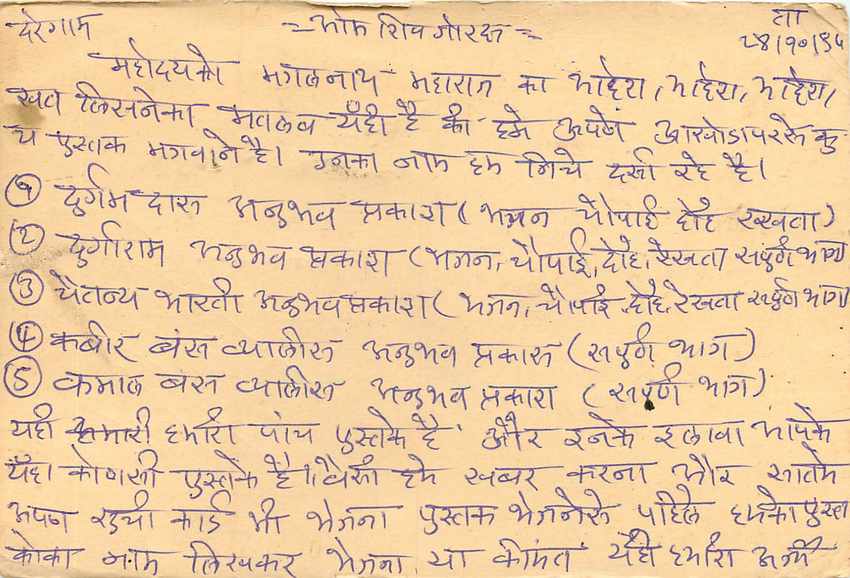 दरेगाम =ओम शिव गोरक्ष= ता
२४/१०/९५
महोदयको मगलनाथ महाराज का आदेश, आदेश, आदेश,
खत लिखनेका मतलब यँही है की हमे अपणे आखोडापरके कु
च पुस्तक मगवाने है। उनका नाम हम निचे दर्शा रहे है।
① दुर्गम दास अनुभव प्रकाश (भजन चौपाई दोहे रखता)
② दुर्गाराम अनुभव प्रकाश (भजन, चौपाई, दोहे, रेखता सपुर्ण भाग)
③ चैतन्य भारती अनुभव प्रकाश (भजन, चौपाई, दोहे, रेखता सपुर्ण भाग)
④ कबीर बंस व्यालीस अनुभव प्रकास (सपुर्ण भाग)
⑤ कमाल बस व्यालीस अनुभव प्रकाश (सपुर्ण भाग)
यही हमारी पांच पुस्तके है और इनके इलावा आपके
यँहा कोणसी पुस्तके है। वैसी हमे खबर करना और साथमे
अपण कार्ड भी भेजना पुस्तक भेजनेसे पहिले हमको पुस्त
कोका नाम लिखकर भेजना या कीमत यँही हमारा अर्ज